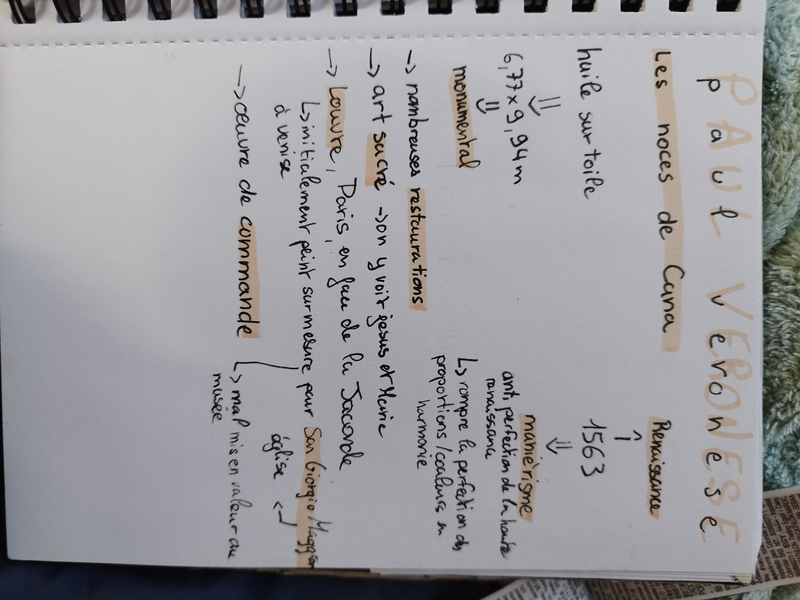 PAUL VERONESE
Paul Veronese
Les noces de Cana
Renaissance
huile sur toile
1563
6,77 x 9,94 m
maniérisme
anti perfection de la haute
renaissance
monumental
↳ rompre la perfection des
proportions/couleurs en
harmonie
→ nombreuses restaurations
→ art sacré → on y voit jesus et Marie
→ Louvre, Paris, en face de la Joconde
↳ initialement peint sur mesure pour San Giorgio Maggior
à venise
église
→ œuvre de commande
↳ mal mis en valeur au
musée